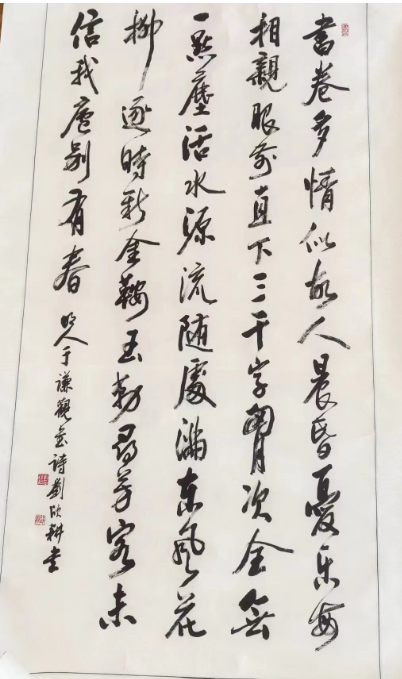 書卷多情似故人晨昏憂樂每
相親眼前直下三千字胸次全無
一點塵活水源流随處滿東風花
柳逐時新金鞍玉勒尋芳客未
信我廬別有春 明人于謙觀書詩劉欣耕書